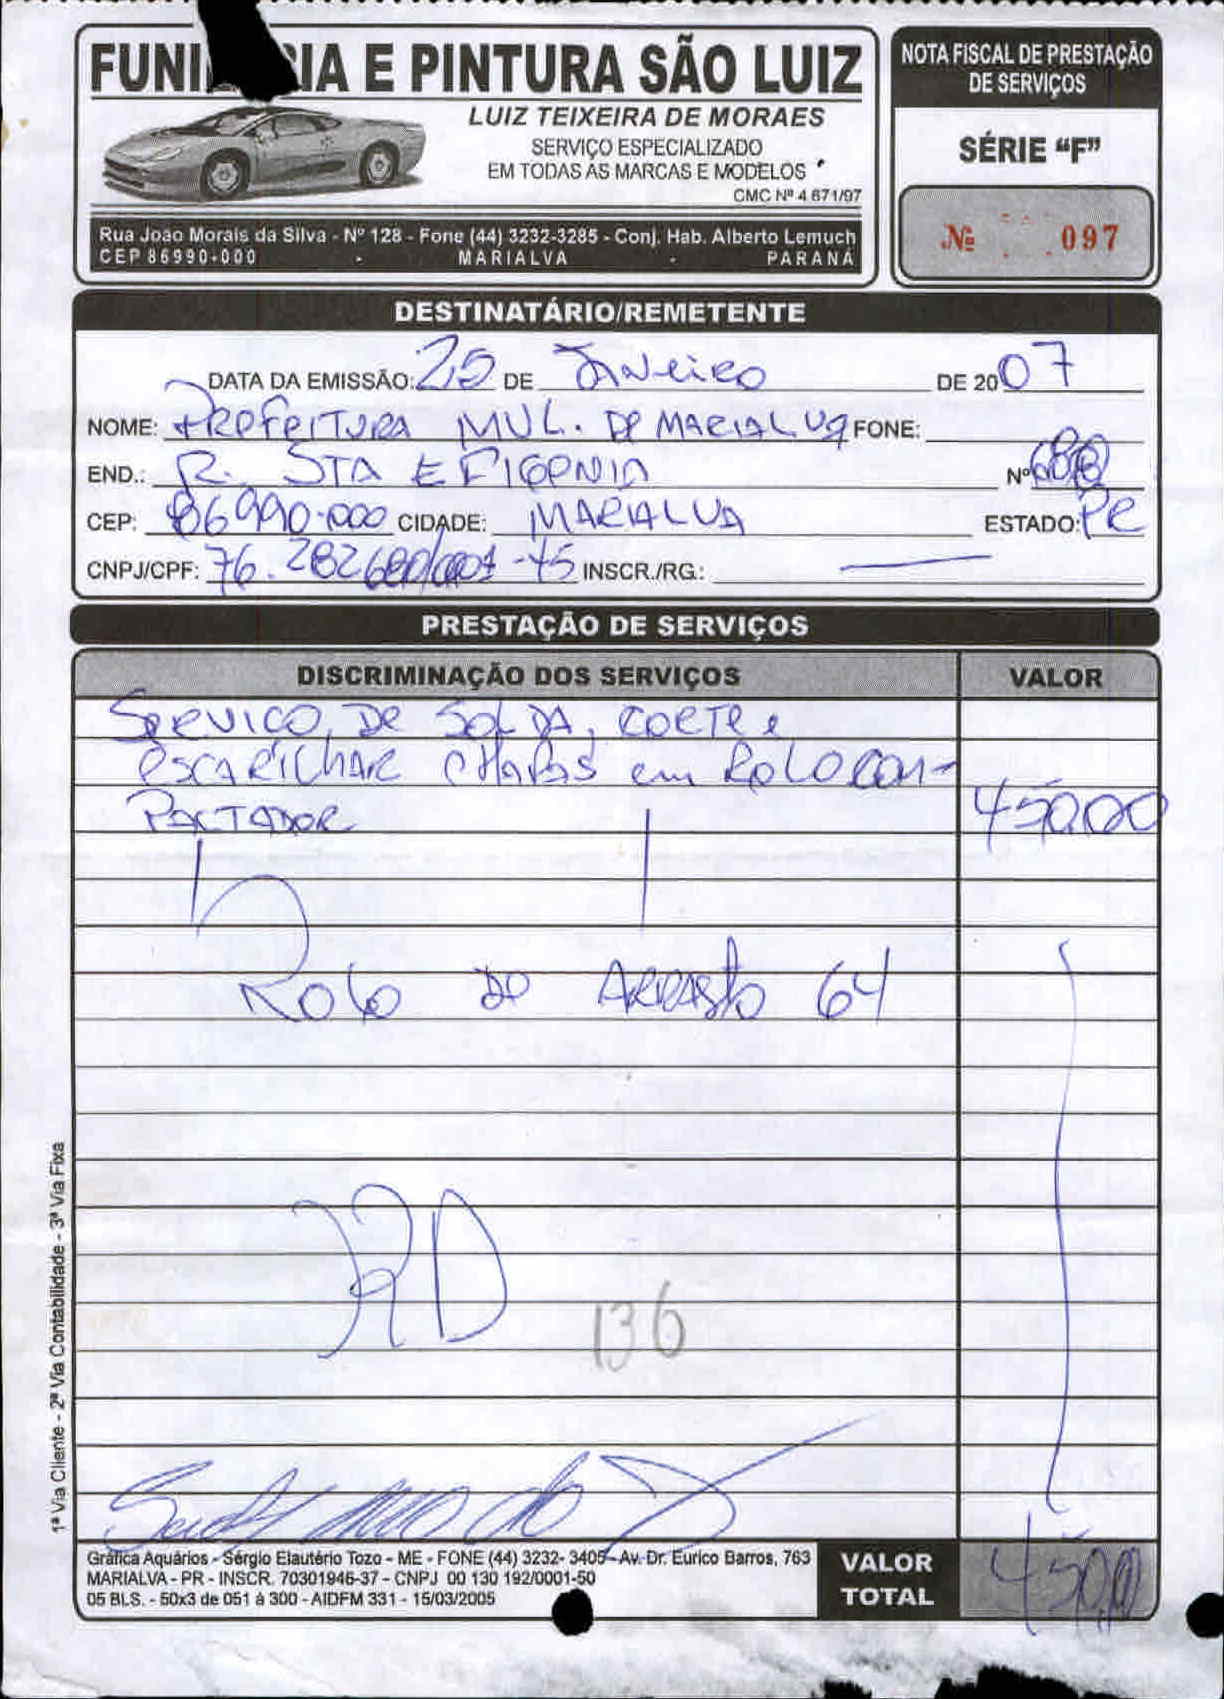 FUNI IA E PINTURA SÃO LUIZ
LUIZ TEIXEIRA DE MORAES
SERVIÇO ESPECIALIZADO
EM TODAS AS MARCAS E MODELOS
CMC Nº 4 671/97
Rua João Morais da Silva - Nº 128 - Fone (44) 3232-3285 - Conj. Hab. Alberto Lemuch
CEP 86990-000 - MARIALVA - PARANÁ
NOTA FISCAL DE PRESTAÇÃO
DE SERVIÇOS
SÉRIE “F”
Nº 097
DESTINATÁRIO/REMETENTE
DATA DA EMISSÃO: 25 DE Janeiro DE 2007
NOME: PREFEITURA MUL. DE MARIALVA FONE:
END.: R. STA EFIGENIA Nº
CEP: 86990-000 CIDADE: MARIALVA ESTADO: PR
CNPJ/CPF: 76.282680/0001-45 INSCR./RG:
PRESTAÇÃO DE SERVIÇOS
DISCRIMINAÇÃO DOS SERVIÇOS VALOR
SERVICO DE SOLDA, CORTE e
ESCARILHAR CHAPAS em ROLO COM-
PACTADOR 450,00
Rolo de ARRASTO 64
136
1ª Via Cliente - 2ª Via Contabilidade - 3ª Via Fixa
Gráfica Aquários - Sérgio Elautério Tozo - ME - FONE (44) 3232-3405 - Av. Dr. Eurico Barros, 763
MARIALVA - PR - INSCR. 70301946-37 - CNPJ 00 130 192/0001-50
05 BLS. - 50x3 de 051 à 300 - AIDFM 331 - 15/03/2005
VALOR
TOTAL 450,00